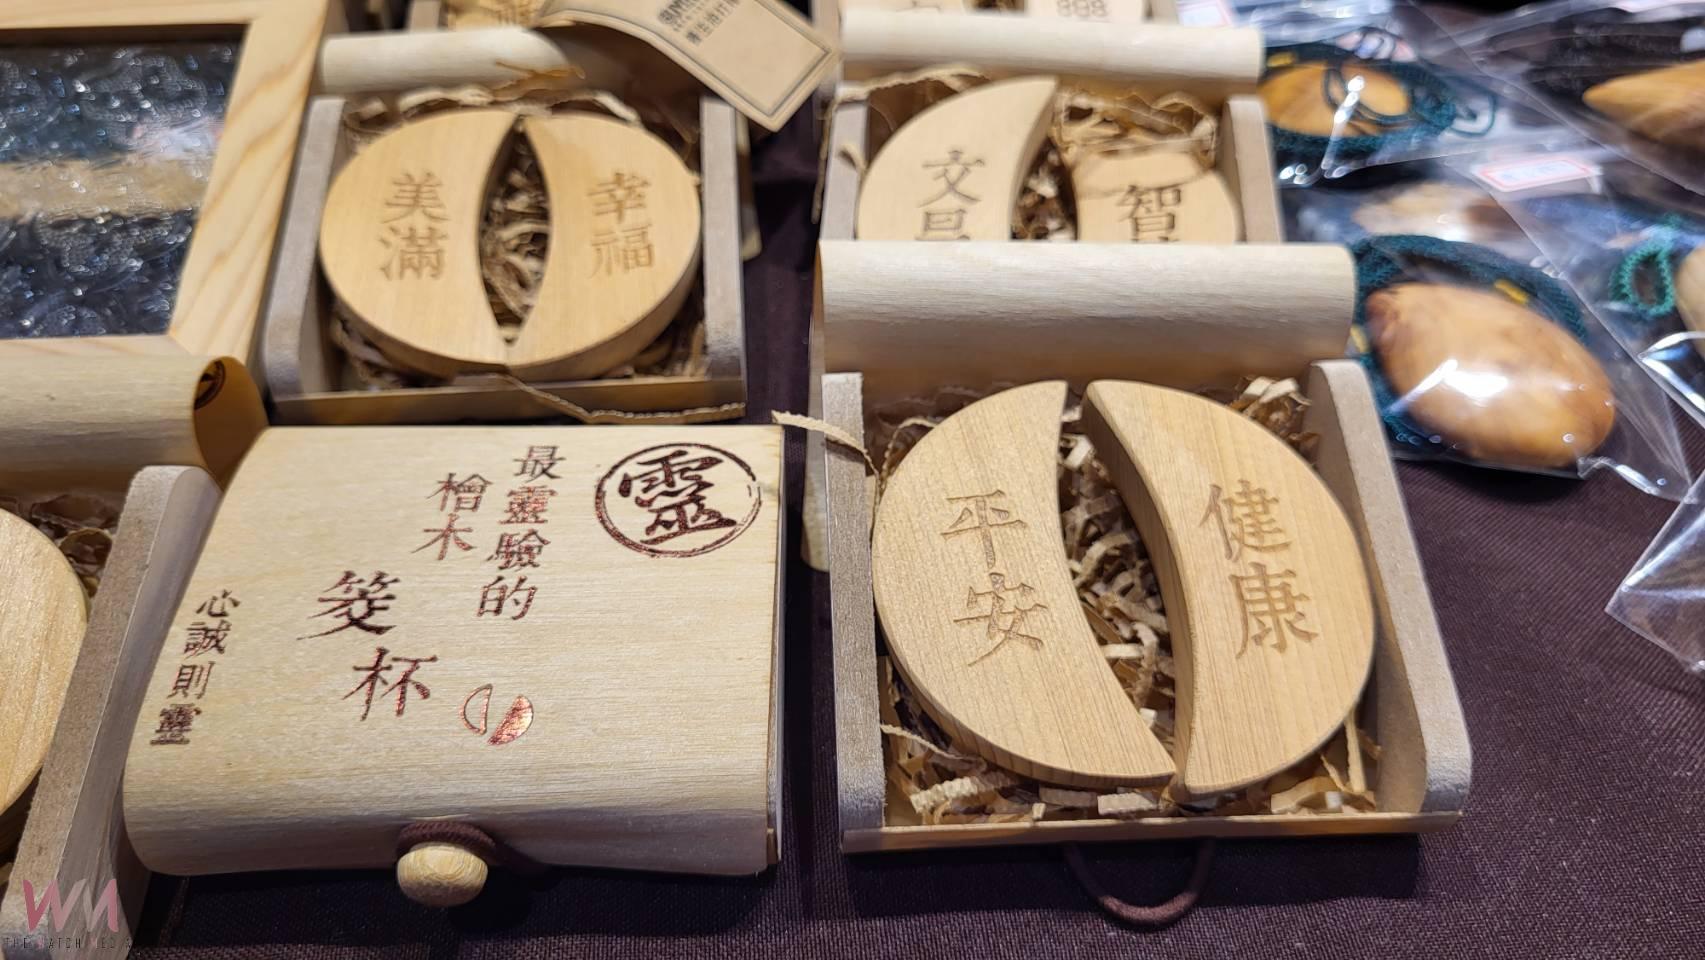 美滿
幸福
文昌
智
平安
健康
靈
最靈驗的
檜木
筊杯
心誠則靈
WM
THE WATCH MEDIA